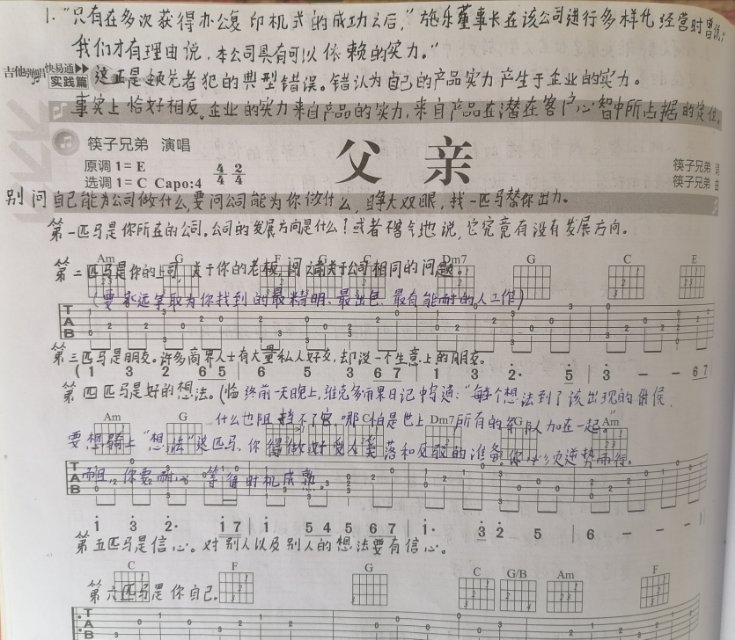 1. "只有在多次获得办公复印机式的成功之后," 施乐董事长在该公司进行多样化经营时曾说:
我们才有理由说,本公司具有可以依赖的实力。"
吉他弹唱快易通
实践篇
这正是领先者犯的典型错误。错认为自己的产品实力产生于企业的实力。
事实上恰好相反。企业的实力来自产品的实力,来自产品在潜在客户心智中所占据的定位。
筷子兄弟 演唱
父亲
原调 1=E
选调 1=C Capo:4
4/4 2/4
筷子兄弟 词
筷子兄弟 曲
别问自己能为公司做什么,要问公司能为你做什么,睁大双眼,找一匹马替你出力。
第一匹马是你所在的公司。公司的发展方向是什么?或者不客气地说,它究竟有没有发展方向。
Am G F C Dm7 G C E
第二匹马是你的上司,关于你的老板,问之前关于公司相同的问题。
(要永远争取为你找到的最精明、最出色、最有能耐的人工作)
TAB
第三匹马是朋友。许多商界人士有大量私人好友,却没一个生意上的朋友。
第四匹马是好的想法。(临终前一天晚上,维克多雨果日记中写道:"每个想法到了该出现的时候,
什么也阻挡不了它,哪怕是世上所有的军队加在一起。"
Am G Dm7 G Am
要想骑上"想法"这匹马,你得做好受人奚落和反驳的准备。你必须逆势而行。
而且,你要耐心等待时机成熟。
TAB
1 3 2· 1 7 | 1 5 4 5 6 7 | 1· 3 2 5 | 6 - - - |
第五匹马是信心。对别人以及别人的想法要有信心。
C F G C G/B Am F
第六匹马是你自己。
TAB